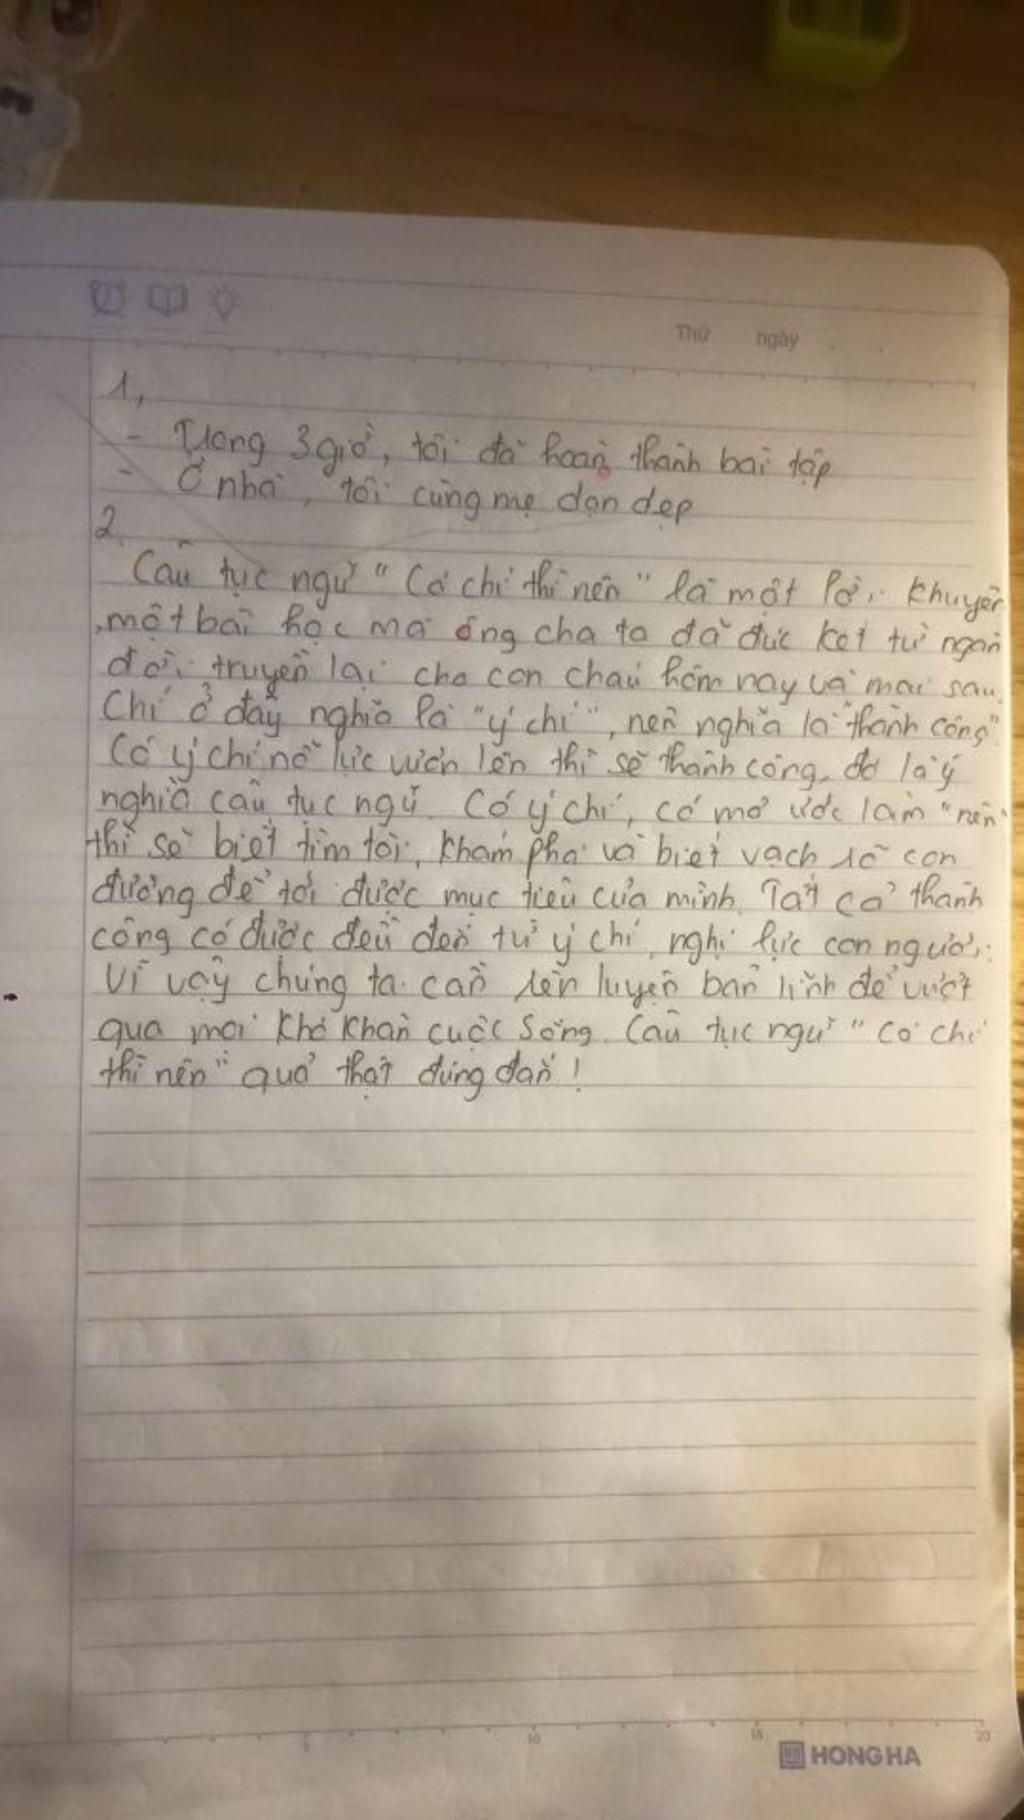 Thứ ngày
1,
- Trong 3 giờ, tôi đã hoàn thành bài tập
- Ở nhà, tôi cùng mẹ dọn dẹp
2.
Câu tục ngữ "Có chí thì nên" là một lời khuyên
, một bài học mà ông cha ta đã đúc kết từ ngàn
đời, truyền lại cho con cháu hôm nay và mai sau.
Chí ở đây nghĩa là "ý chí", nên nghĩa là "thành công".
Có ý chí nỗ lực vươn lên thì sẽ thành công, đó là ý
nghĩa câu tục ngữ. Có ý chí, có mơ ước làm "nên"
thì sẽ biết tìm tòi, khám phá và biết vạch rõ con
đường để tới được mục tiêu của mình. Tất cả thành
công có được đều đến từ ý chí, nghị lực con người.
Vì vậy chúng ta cần rèn luyện bản lĩnh để vượt
qua mọi khó khăn cuộc sống. Câu tục ngữ "có chí
thì nên" quả thật đúng đắn!
5 10 15 20
HONG HA